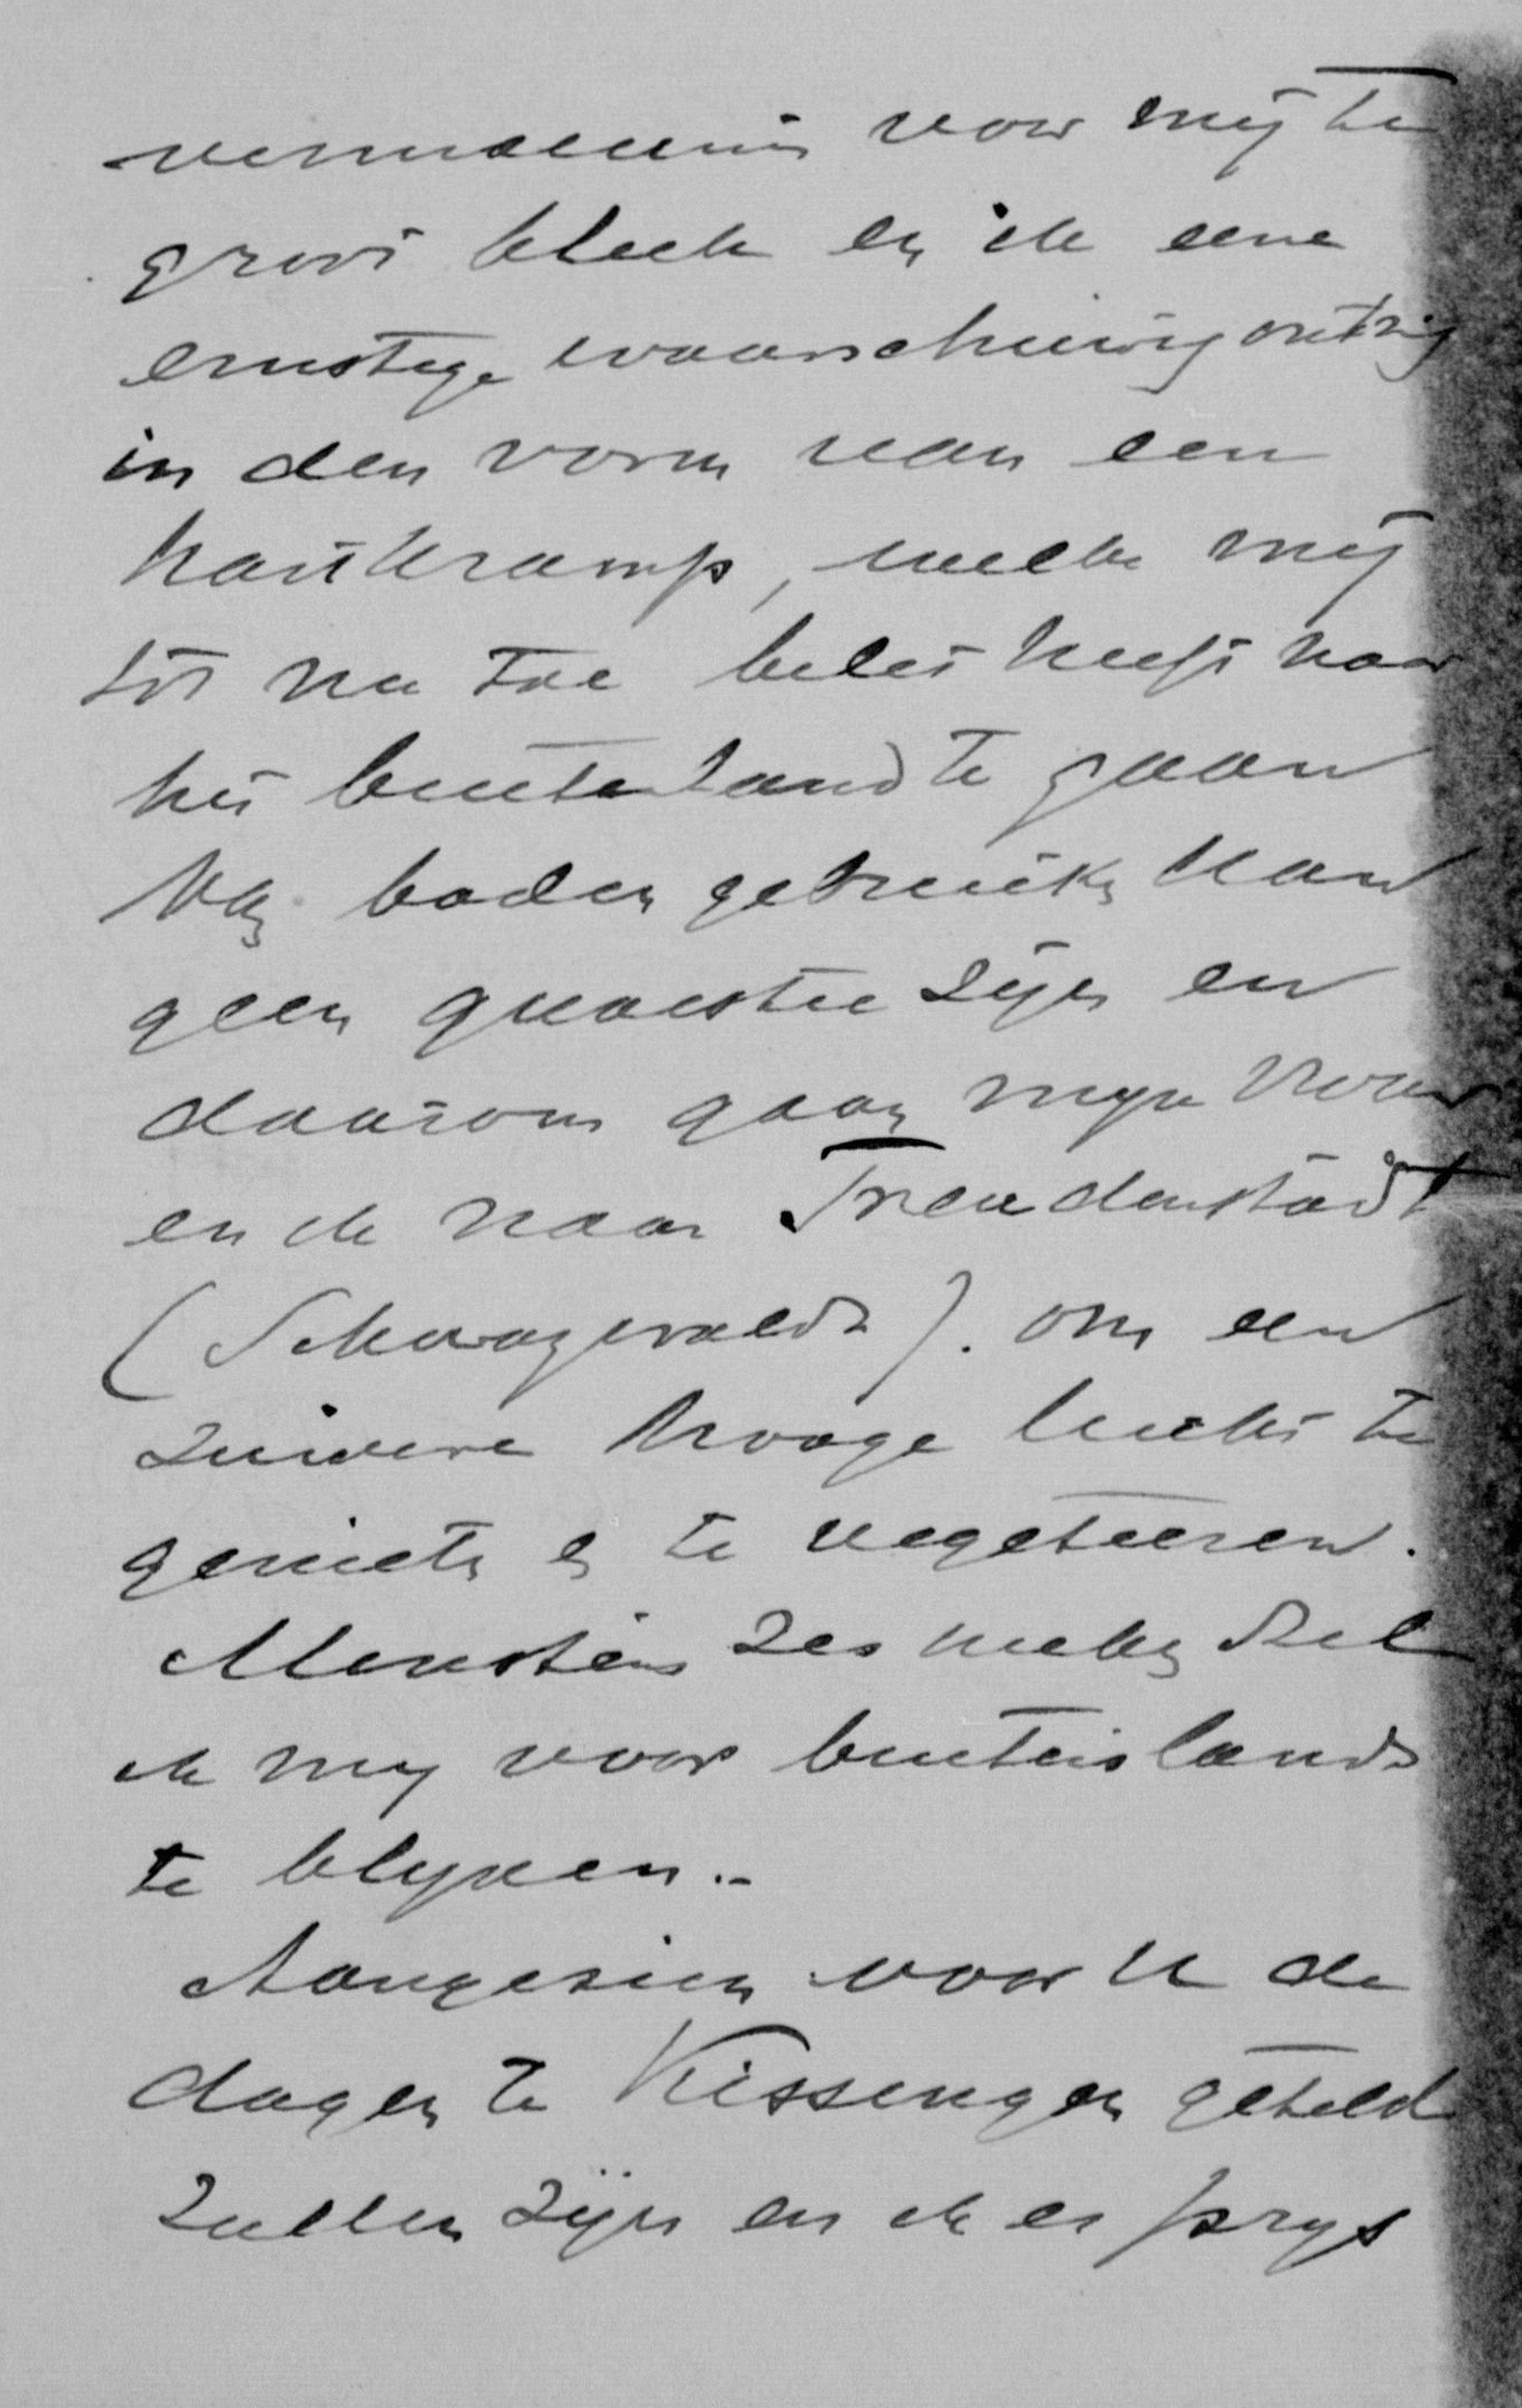 vermoeienis voor mij te
groot bleek en ik eene
ernstige waarschuwing ontving
in den vorm van een
hartkramp, welke mij
tot nu toe belet heeft naar
het buitenland te gaan
Van baden gebruiken kan
geen quaestie zijn en
daarom gaan mijn vrouw
en ik naar Freudenstadt
(Schwarzwald). om een
zuivere hooge lucht te
genieten en te vegeteeren.
Minstens zes weken stel
ik mij voor buitenslands
te blijven.-
Aangezien voor U de
dagen te Kissengen geteld
zullen zijn en ik er prijs